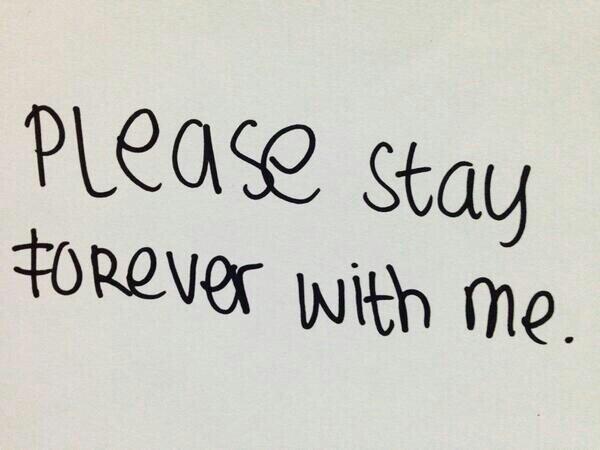 Please stay
FOREVER with me.